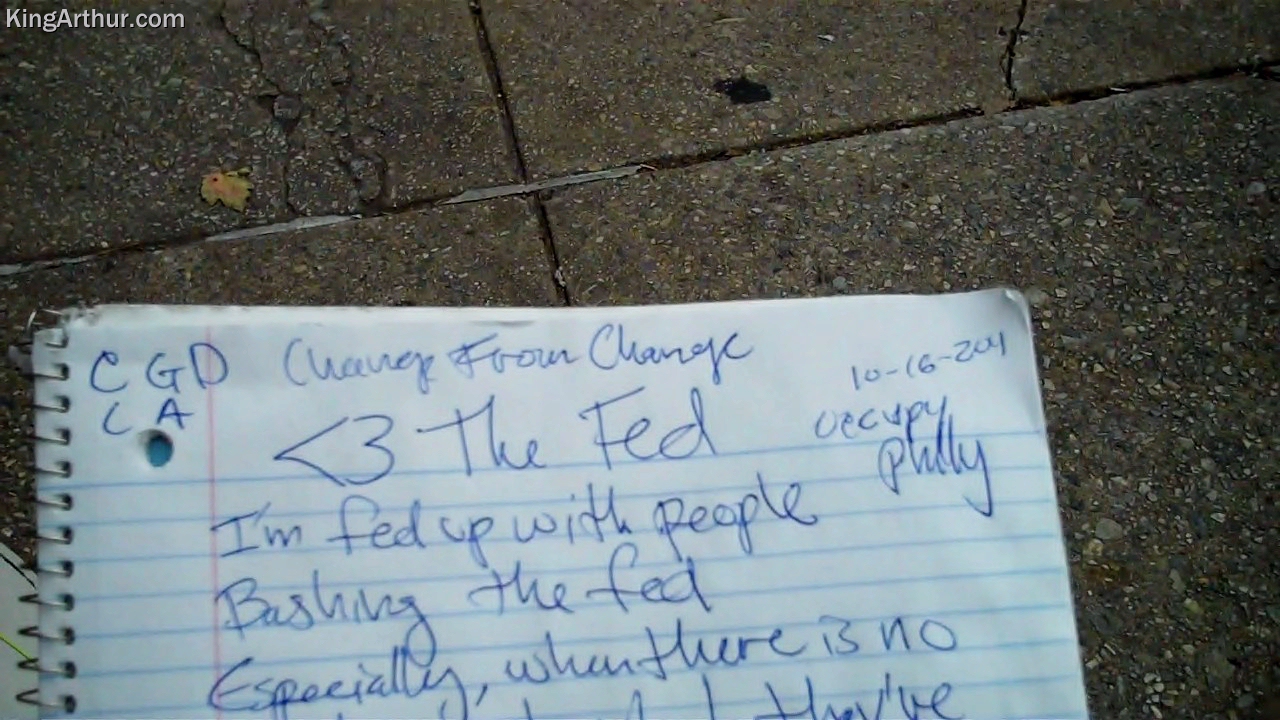 KingArthur.com
C G D Change From Change
10-16-2011
C A
<3 The Fed
Occupy
Philly
I'm fed up with people
Bashing the fed
Especially, when there is no
they've